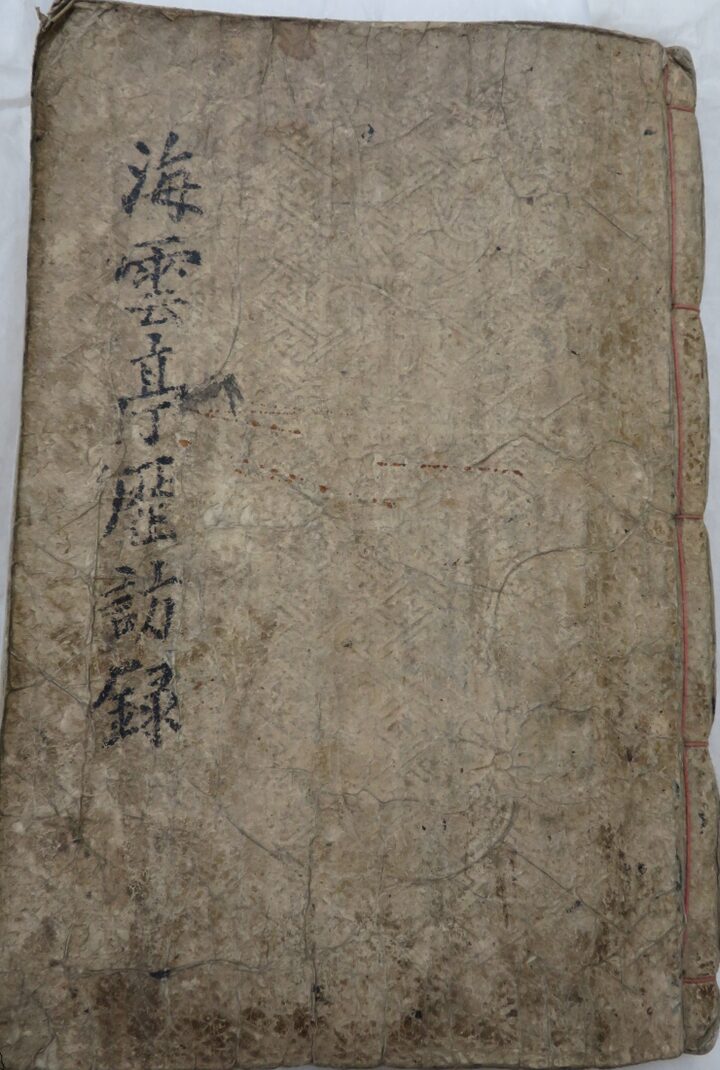 海雲亭歷訪錄